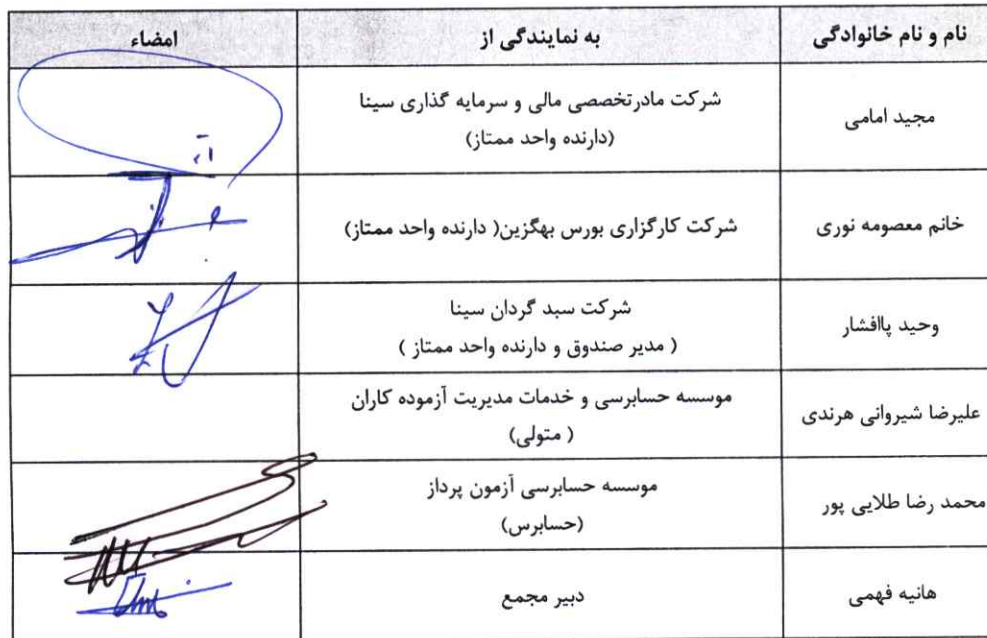 نام و نام خانوادگی به نمایندگی از امضاء
مجید امامی شرکت مادرتخصصی مالی و سرمایه گذاری سینا
(دارنده واحد ممتاز)
خانم معصومه نوری شرکت کارگزاری بورس بهگزین( دارنده واحد ممتاز)
وحید پاافشار شرکت سبد گردان سینا
( مدیر صندوق و دارنده واحد ممتاز )
علیرضا شیروانی هرندی موسسه حسابرسی و خدمات مدیریت آزموده کاران
( متولی)
محمد رضا طلایی پور موسسه حسابرسی آزمون پرداز
(حسابرس)
هانیه فهمی دبیر مجمع